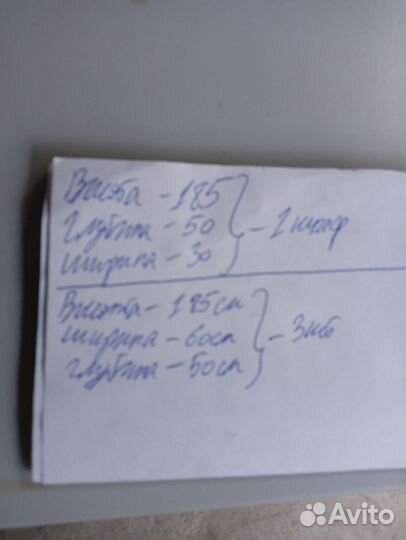 Высота - 185
глубина - 50
ширина - 30
- 1 шкаф
Высота - 185см
ширина - 60см
глубина - 50см
Avito